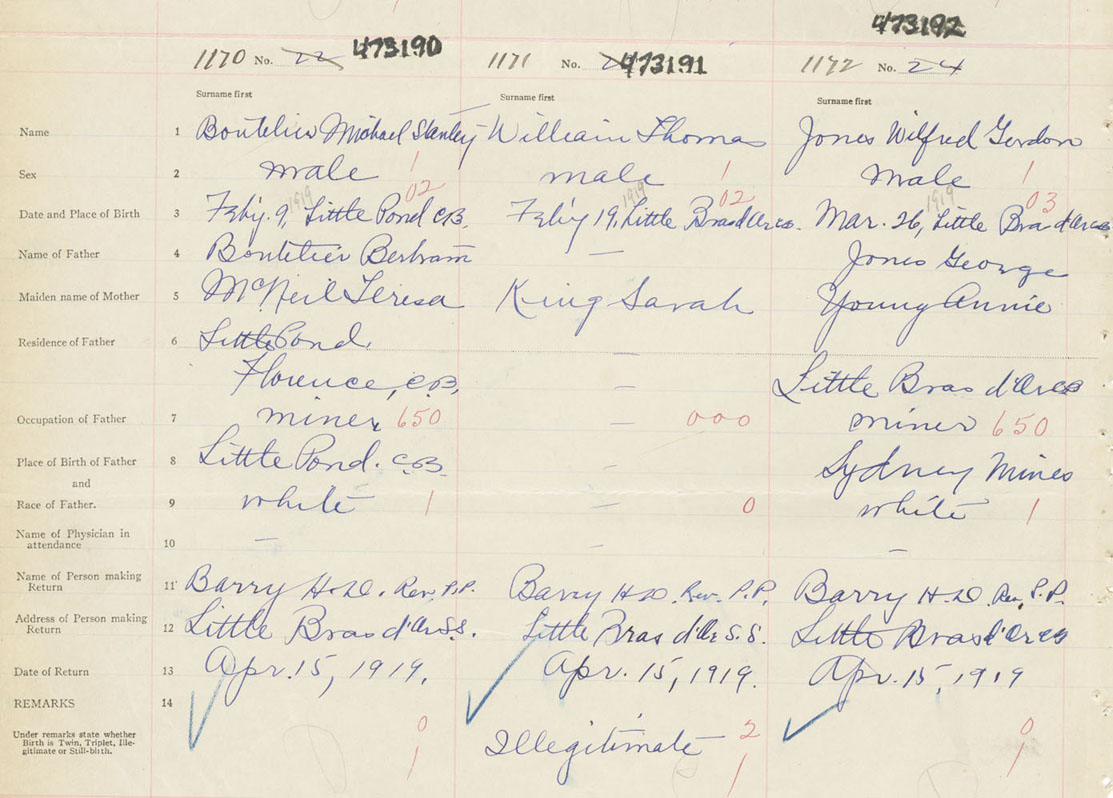 473192
1170 No. 22 473190 1171 No. 473191 1172 No. 24
Surname first Surname first Surname first
Name 1 Boutelier Michael Stanley William Thomas Jones Wilfred Gordon
Sex 2 male 1 male 1 Male 1
1919 02 1919 02 1919 03
Date and Place of Birth 3 Feb'y. 9, Little Pond C.B. Feb'y 19, Little Bras d'Or C.B. Mar. 26, Little Bra d'Or CB
Name of Father 4 Boutelier Bertram — Jones George
Maiden name of Mother 5 McNeil Teresa King Sarah Young Annie
Residence of Father 6 Little Pond. —
Florence, C.B. — Little Bras d'Or CB
Occupation of Father 7 miner, 650 — 000 miner 650
Place of Birth of Father 8 Little Pond. C.B. — Sydney Mines
and
Race of Father. 9 white 1 — 0 white 1
Name of Physician in
attendance 10 — — —
Name of Person making
Return 11 Barry H.D. Rev. P.P. Barry H.D. Rev. P.P. Barry H.D. Rev. P.P.
Address of Person making
Return 12 Little Bras d'Or S.S. Little Bras d'Or S.S. Little Bras d'Or CB
Date of Return 13 Apr. 15, 1919. Apr. 15, 1919. Apr. 15, 1919
REMARKS 14
Under remarks state whether
Birth is Twin, Triplet, Ille-
gitimate or Still-birth.
0 Illegitimate 2 0
1 1 1